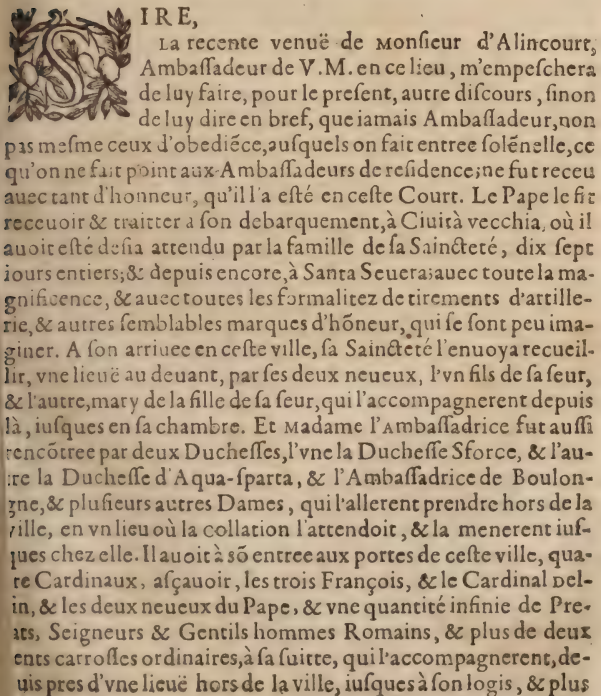 SIRE,
La recente venuë de Monſieur d'Alincourt,
Ambaſſadeur de V.M. en ce lieu, m'empeſchera
de luy faire, pour le preſent, autre diſcours, ſinon
de luy dire en bref, que iamais Ambaſſadeur, non
pas meſme ceux d'obediẽce, auſquels on fait entree ſolẽnelle, ce
qu'on ne fait point aux Ambaſſadeurs de reſidence; ne fut receu
auec tant d'honneur, qu'il l'a eſté en ceſte Court. Le Pape le fit
receuoir & traitter a ſon debarquement, à Ciuità vecchia, où il
auoit eſté deſia attendu par la famille de ſa Saincteté, dix ſept
iours entiers; & depuis encore, à Santa Seuera; auec toute la ma-
gnificence, & auec toutes les formalitez de tirements d'artille-
rie, & autres ſemblables marques d'hõneur, qui ſe ſont peu ima-
giner. A ſon arriuee en ceſte ville, ſa Saincteté l'enuoya recueil-
lir, vne lieuë au deuant, par ſes deux neueux, l'vn fils de ſa ſeur,
& l'autre, mary de la fille de ſa ſeur, qui l'accompagnerent depuis
là, iuſques en ſa chambre. Et Madame l'Ambaſſadrice fut auſſi
rencõtree par deux Ducheſſes, l'vne la Ducheſſe Sforce, & l'au-
tre la Ducheſſe d'Aqua-ſparta, & l'Ambaſſadrice de Boulon-
gne, & pluſieurs autres Dames, qui l'allerent prendre hors de la
ville, en vn lieu où la collation l'attendoit, & la menerent iuſ-
ques chez elle. Il auoit à sõ entree aux portes de ceſte ville, qua-
re Cardinaux, aſçauoir, les trois François, & le Cardinal Del-
in, & les deux neueux du Pape, & vne quantité infinie de Pre-
ats, Seigneurs & Gentils hommes Romains, & plus de deux
ents carroſſes ordinaires, à ſa ſuitte, qui l'accompagnerent, de-
uis pres d'vne lieuë hors de la ville, iuſques à ſon logis, & plus